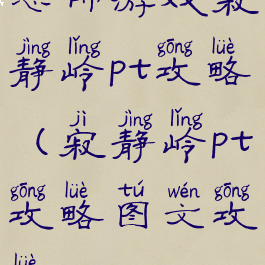 游戏寂
jìng lǐng gōng lüè
静岭pt攻略
jì jìng lǐng
（寂静岭pt
gōng lüè tú wén gōng
攻略图文攻
lüè